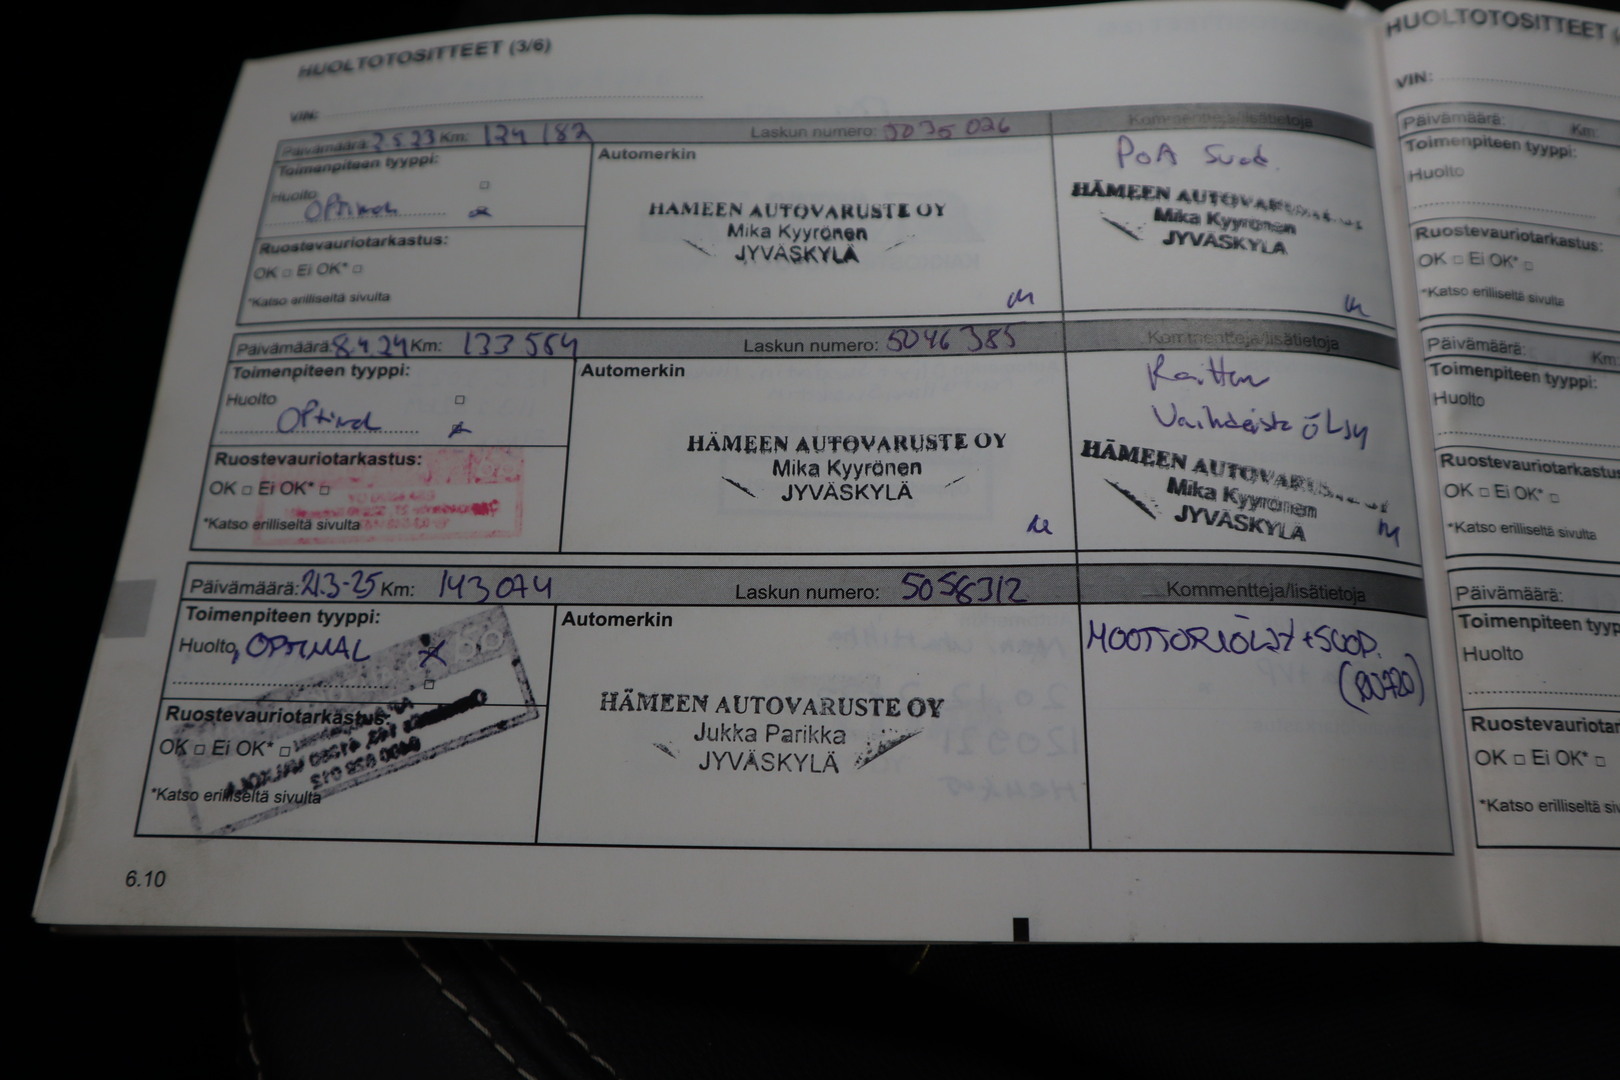 HUOLTOTOSITTEET (3/6)
VIN:
Päivämäärä: 2.5.23 Km: 124 182 Laskun numero: 5035 026 Kommentteja/lisätietoja
Toimenpiteen tyyppi:
Huolto
Optimal
Ruostevauriotarkastus:
OK □ Ei OK* □
*Katso erilliseltä sivulta
Automerkin
HÄMEEN AUTOVARUSTE OY
Mika Kyyrönen
JYVÄSKYLÄ
PoA Suod.
HÄMEEN AUTOVARUSTE OY
Mika Kyyrönen
JYVÄSKYLÄ
Päivämäärä: 8.4.24 Km: 133 564 Laskun numero: 5046 385 Kommentteja/lisätietoja
Toimenpiteen tyyppi:
Huolto
Optimal
Ruostevauriotarkastus:
OK □ Ei OK* □
*Katso erilliseltä sivulta
Automerkin
HÄMEEN AUTOVARUSTE OY
Mika Kyyrönen
JYVÄSKYLÄ
Vaihdeisto öljy
HÄMEEN AUTOVARUSTE OY
Mika Kyyrönen
JYVÄSKYLÄ
Päivämäärä: 21.3-25 Km: 143 074 Laskun numero: 5058312 Kommentteja/lisätietoja
Toimenpiteen tyyppi:
Huolto, OPTIMAL
Ruostevauriotarkastus:
OK □ Ei OK* □
*Katso erilliseltä sivulta
Automerkin
HÄMEEN AUTOVARUSTE OY
Jukka Parikka
JYVÄSKYLÄ
MOOTTORIÖLJY + SUOD.
(RN720)
6.10
HUOLTOTOSITTEET
VIN:
Päivämäärä: Km:
Toimenpiteen tyyppi:
Huolto
Ruostevauriotarkastus:
OK □ Ei OK* □
*Katso erilliseltä sivulta
Päivämäärä: Km
Toimenpiteen tyyppi:
Huolto
Ruostevauriotarkastus
OK □ Ei OK* □
*Katso erilliseltä sivulta
Päivämäärä:
Toimenpiteen typp
Huolto
Ruostevauriotar
OK □ Ei OK* □
*Katso erilliseltä siv